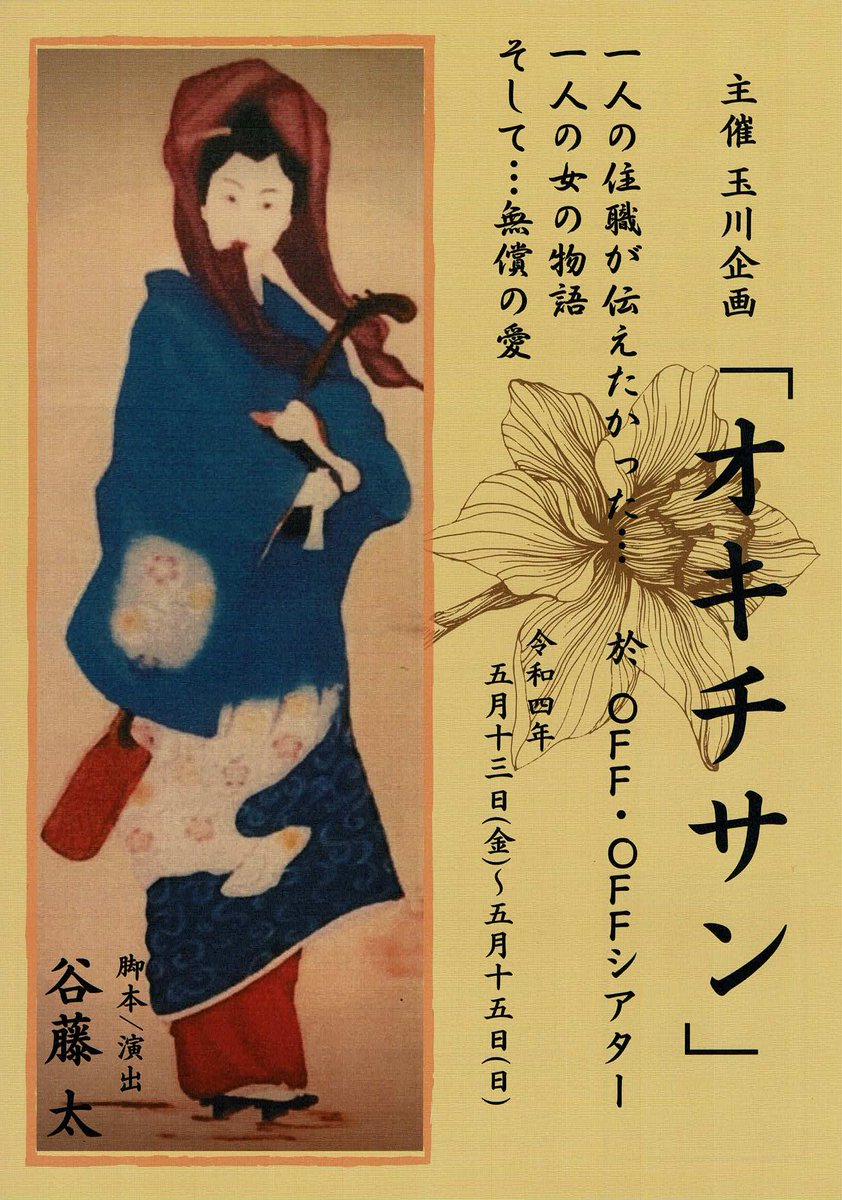 主催 玉川企画
「オキチサン」
一人の住職が伝えたかった…
一人の女の物語
そして…無償の愛
於 OFF・OFFシアター
令和四年
五月十三日(金)～五月十五日(日)
脚本/演出
谷藤 太